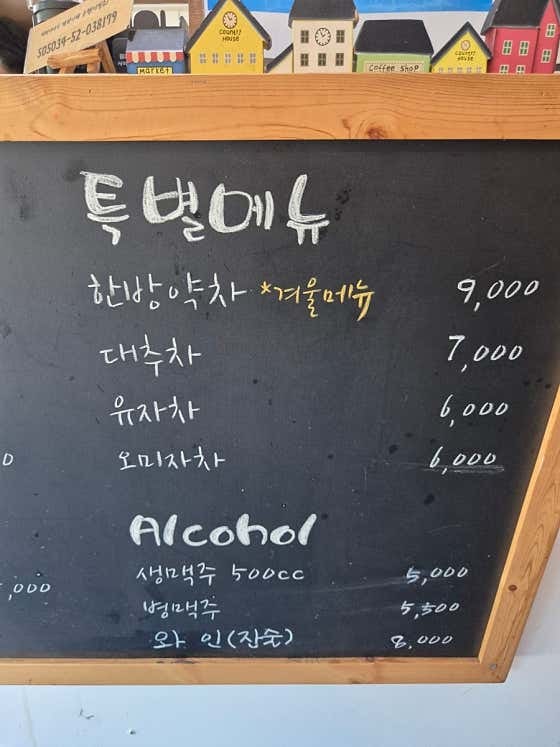 505034-52-038179
MARKET
COUNTRY HOUSE
COUNTRY HOUSE
Coffee Shop
COUNTRY HOUSE
특별메뉴
한방약차 *겨울메뉴 9,000
대추차 7,000
유자차 6,000
0
오미자차 6,000
Alcohol
생맥주 500cc 5,000
,000
병맥주 5,500
와인(잔술) 8,000